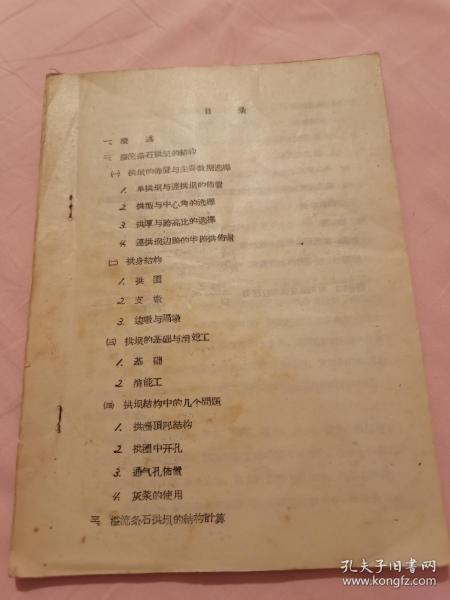 目 录
一、概 述
二、溢流条石拱坝的结构
(一) 拱坝的佈置与主要数据选择
1. 单拱坝与连拱坝的佈置
2. 拱型与中心角的选择
3. 拱厚与跨高比的选择
4. 连拱坝边跨的半跨拱佈置
(二) 拱身结构
1. 拱圈
2. 支墩
3. 边墩与隔墩
(三) 拱坝的基础与消能工
1. 基础
2. 消能工
(四) 拱坝结构中的几个問題
1. 拱圈頂部结构
2. 拱圈中开孔
3. 通气孔佈置
4. 灰浆的使用
三、溢流条石拱坝的结构計算
孔夫子旧书网
www.kongfz.com